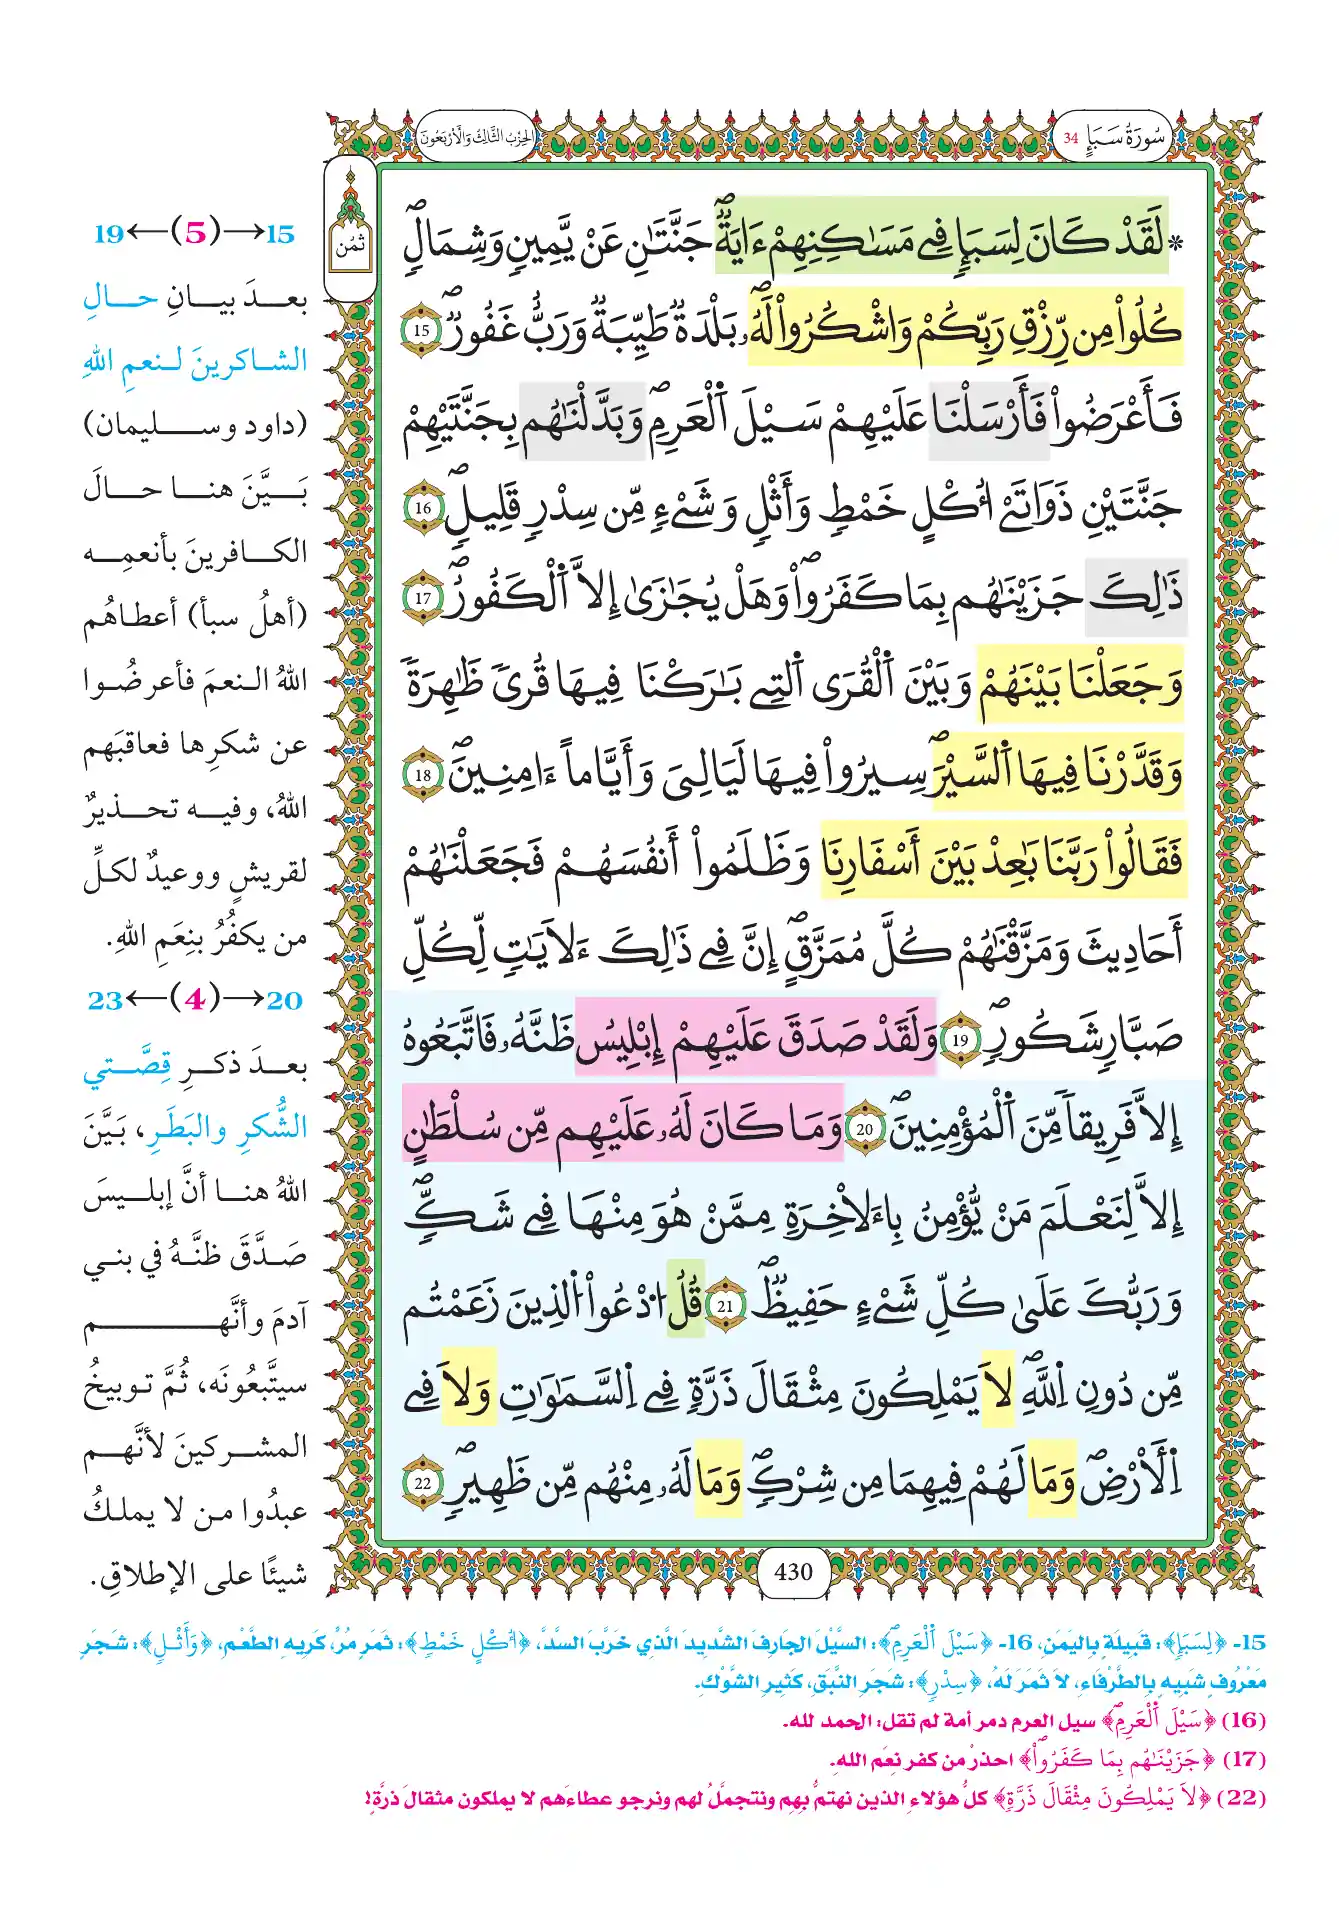 سُورَةُ سَبَإٍ 34
الحِزْبُ الثَّالِثُ وَالْأَرْبَعُونَ
ثمُن
* لَقَدْ كَانَ لِسَبَإٍ فِے مَسَٰكِنِهِمْ ءَايَةٌۖ جَنَّتَٰنِ عَنْ يَّمِينٍ وَشِمَالٍۖ
كُلُواْ مِن رِّزْقِ رَبِّكُمْ وَاشْكُرُواْ لَهُۥۖ بَلْدَةٌ طَيِّبَةٌ وَرَبٌّ غَفُورٌۖ 15
فَأَعْرَضُواْ فَأَرْسَلْنَا عَلَيْهِمْ سَيْلَ اَ۬لْعَرِمِۖ وَبَدَّلْنَٰهُم بِجَنَّتَيْهِمْ
جَنَّتَيْنِ ذَوَاتَےْ أُكْلٍ خَمْطٍ وَأَثْلٍ وَشَےْءٍ مِّن سِدْرٍ قَلِيلٍۖ 16
ذَٰلِكَ جَزَيْنَٰهُم بِمَا كَفَرُواْۖ وَهَلْ يُجَٰزَىٰ إِلَّا اَ۬لْكَفُورُۖ 17
وَجَعَلْنَا بَيْنَهُمْ وَبَيْنَ اَ۬لْقُرَى اَ۬لتِے بَٰرَكْنَا فِيهَا قُرىٗ ظَٰهِرَةٗ
وَقَدَّرْنَا فِيهَا اَ۬لسَّيْرَۖ سِيرُواْ فِيهَا لَيَالِىَ وَأَيَّاماً ءَامِنِينَۖ 18
فَقَالُواْ رَبَّنَا بَٰعِدْ بَيْنَ أَسْفَارِنَا وَظَلَمُواْ أَنفُسَهُمْ فَجَعَلْنَٰهُمْ
أَحَادِيثَ وَمَزَّقْنَٰهُمْ كُلَّ مُمَزَّقٍۖ إِنَّ فِے ذَٰلِكَ ءَلَايَٰتٍ لِّكُلِّ
صَبَّارٍ شَكُورٍۖ 19 وَلَقَدْ صَدَقَ عَلَيْهِمْ إِبْلِيسُ ظَنَّهُۥ فَاتَّبَعُوهُ
إِلَّا فَرِيقاٗ مِّنَ اَ۬لْمُؤْمِنِينَۖ 20 وَمَا كَانَ لَهُۥ عَلَيْهِم مِّن سُلْطَٰنٍ
إِلَّا لِنَعْلَمَ مَنْ يُّؤْمِنُ بِاءَلَاخِرَةِ مِمَّنْ هُوَ مِنْهَا فِے شَكّٖۖ
وَرَبُّكَ عَلَىٰ كُلِّ شَےْءٍ حَفِيظٌۖ 21 قُلُ اُ۟دْعُواْ اُ۬لذِينَ زَعَمْتُم
مِّن دُونِ اِ۬للَّهِۖ لَا يَمْلِكُونَ مِثْقَالَ ذَرَّةٍ فِے اِ۬لسَّمَٰوَٰتِ وَلَا فِے
اِ۬لْأَرْضِۖ وَمَا لَهُمْ فِيهِمَا مِن شِرْكٍۖ وَمَا لَهُۥ مِنْهُم مِّن ظَهِيرٍۖ 22
430
15→(5)←19
بعدَ بيانِ حالِ
الشاكرينَ لنعمِ اللهِ
(داود وسليمان)
بَيَّنَ هنا حالَ
الكافرينَ بأنعمِه
(أهلُ سبأ) أعطاهُم
اللهُ النعمَ فأعرضُوا
عن شكرِها فعاقبَهم
اللهُ، وفيه تحذيرٌ
لقريشٍ ووعيدٌ لكلِّ
من يكفُرُ بنِعَمِ اللهِ.
20→(4)←23
بعدَ ذكرِ قِصَّتي
الشُّكرِ والبَطَرِ، بَيَّنَ
اللهُ هنا أنَّ إبليسَ
صَدَّقَ ظنَّهُ في بني
آدمَ وأنَّهم
سيتَّبعُونَه، ثُمَّ توبيخُ
المشركينَ لأنَّهم
عبدُوا من لا يملكُ
شيئًا على الإطلاقِ.
15- ﴿لِسَبَإٍ﴾: قَبِيلَةٍ بِاليَمَنِ، 16- ﴿سَيْلَ اَ۬لْعَرِمِۖ﴾: السَّيْلَ الجَارِفَ الشَّدِيدَ الَّذِي خَرَّبَ السَّدَّ، ﴿أُكْلٍ خَمْطٍ﴾: ثَمَرٍ مُرٍّ، كَرِيهِ الطَّعْمِ، ﴿وَأَثْلٍ﴾: شَجَرٍ
مَعْرُوفٍ شَبِيهٍ بِالطَّرْفَاءِ، لَا ثَمَرَ لَهُ، ﴿سِدْرٍ﴾: شَجَرِ النَّبَقِ، كَثِيرِ الشَّوْكِ.
(16) ﴿سَيْلَ اَ۬لْعَرِمِۖ﴾ سيل العرم دمر أمة لم تقل: الحمد لله.
(17) ﴿جَزَيْنَٰهُم بِمَا كَفَرُواْۖ﴾ احذرْ من كفر نِعَم الله.
(22) ﴿لَا يَمْلِكُونَ مِثْقَالَ ذَرَّةٍ﴾ كلُّ هؤلاءِ الذين نهتمُّ بهم ونتجملُّ لهم ونرجو عطاءَهم لا يملكون مثقالَ ذرَّةٍ!